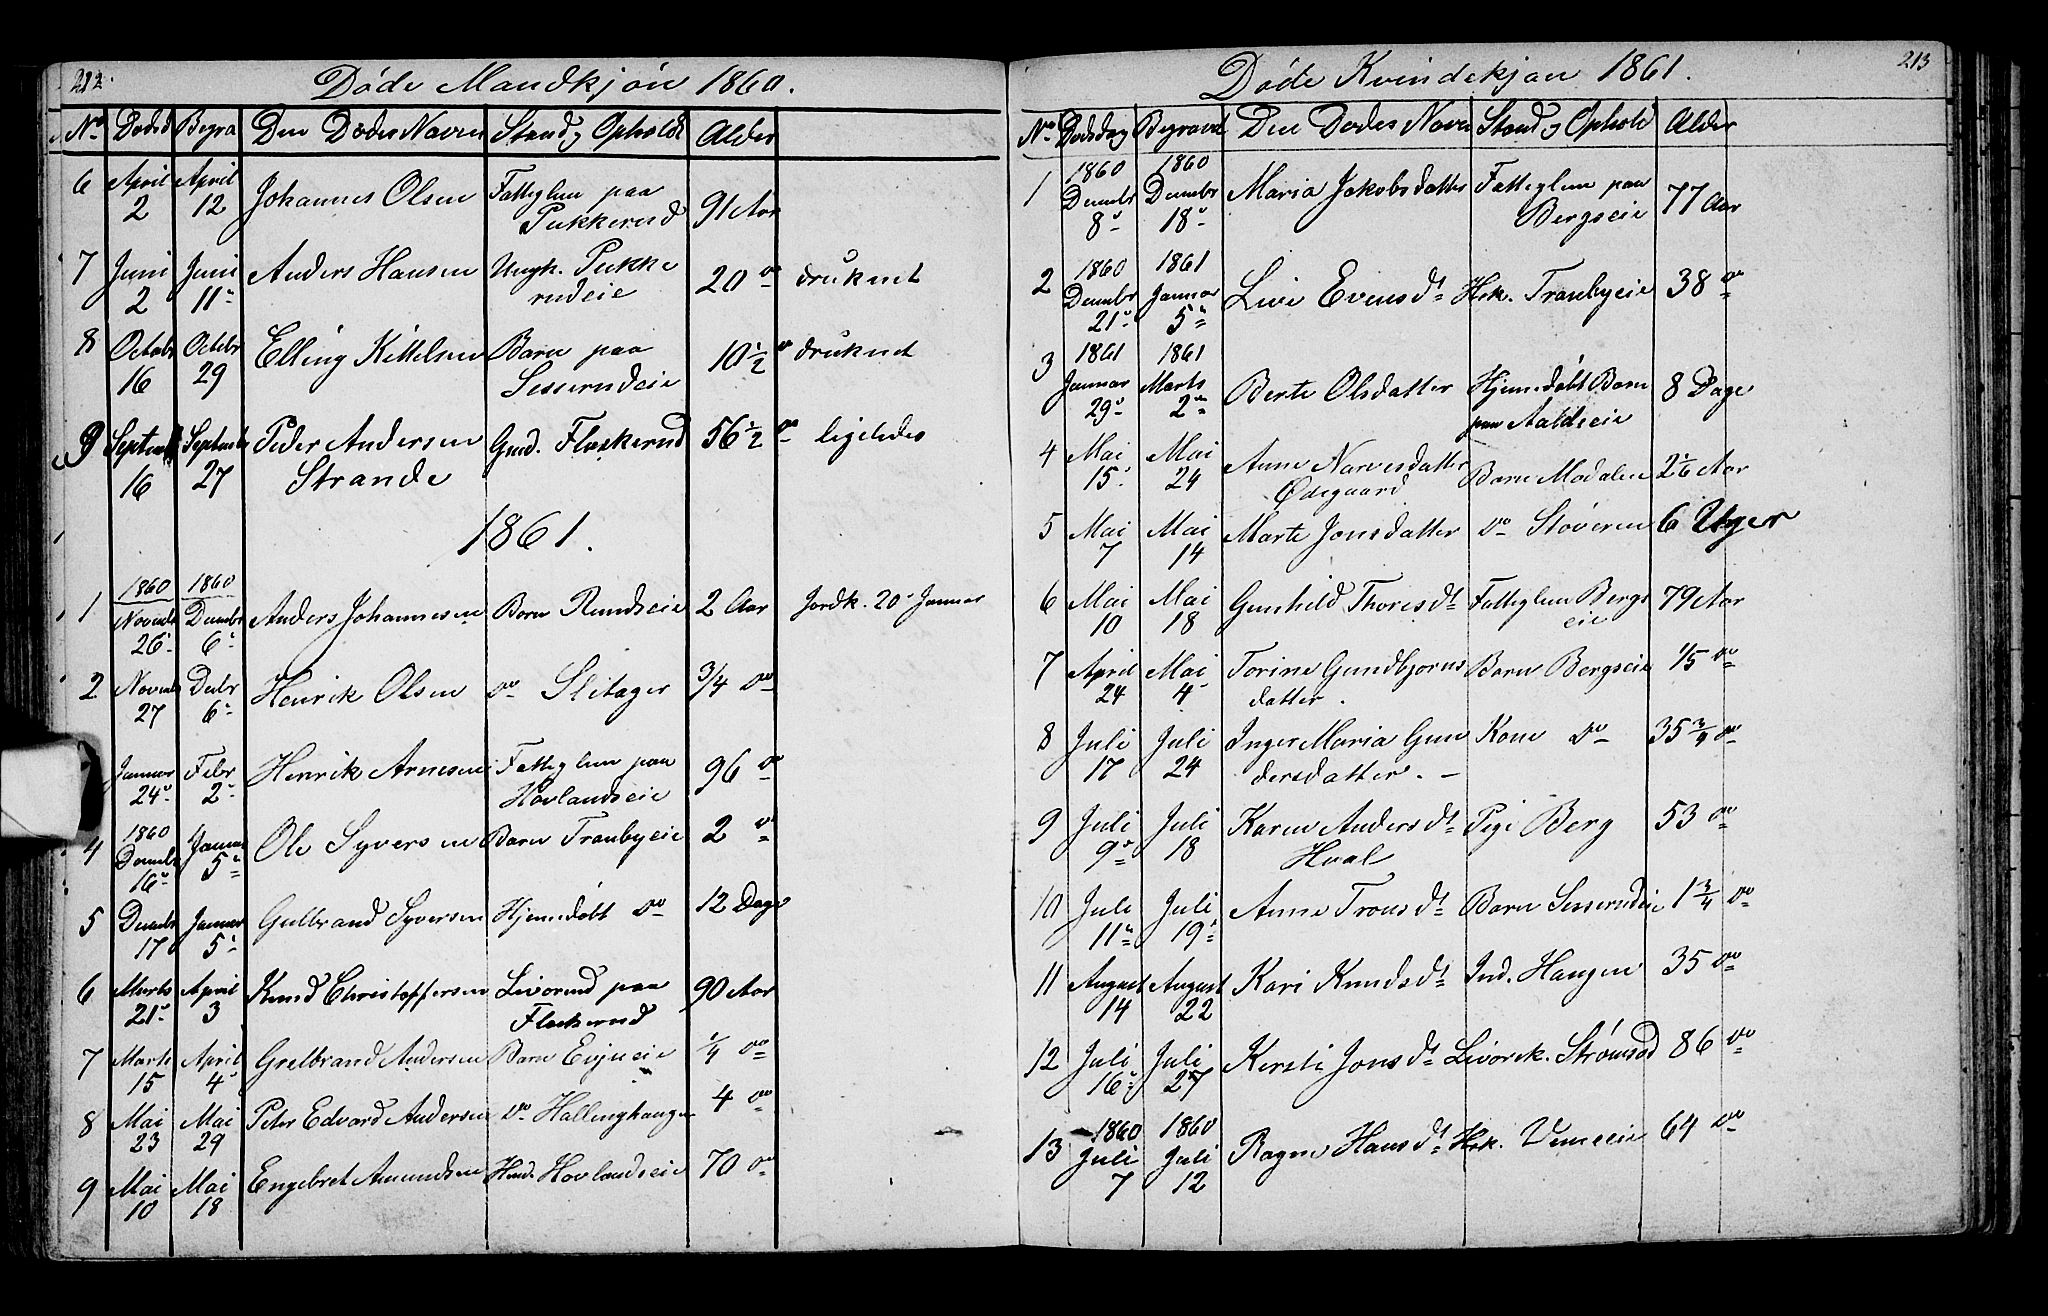 212.
Døde Mandkjøn 1860.
No Dødsd Begra Den Dødes Navn Stand & Ophold Alder
6 April 2 April 12 Johannes Olsen Fattiglem paa Pukkerud 91 Aar
7 Juni 2 Juni 11 Anders Hansen Ungk. Pukkerudeie 20 do druknet
8 Octobr 16 Octobr 29 Elling Kittelsen Barn paa Sesserudeie 10 1/2 do druknet
9 Septembr 16 Septembr 27 Peder Andersen Strande Gmd. Flaskerud 56 1/2 do ligeledes
1861.
1 1860 Novembr 26 1860 Decembr 6 Anders Johannesen Barn Rundseie 2 Aar Jordk. 20 Januar
2 Novembr 27 Decbr 6 Henrik Olsen do Slitager 3/4 do
Januar 24 Febr 2 Henrik Arnesen Fattiglem paa Hovlandseie 96 do
4 1860 Decembr 16 Januar 5 Ole Syversen Barn Tranbyeie 2 do
5 Decembr 17 Januar 5 Gulbrand Syversen Hjemedøbt do 12 Dage
6 Marts 21 April 3 Knud Christoffersen Livørmd paa Flaskerud 90 Aar
7 Marts 15 April 4 Gulbrand Andersen Barn Evjueie 1/4 do
8 Mai 23 Mai 29 Peter Edvard Andersen do Hallinghaugen 4 do
9 Mai 10 Mai 18 Engebret Amundsen Hmd. Hovlandseie 70 do
213
Døde Kvindekjøn 1861.
No Dødsdag Begravet Den Dødes Navn Stand & Ophold Alder
1 1860 Decembr 8 1860 Decembr 18 Maria Jakobsdatter Fattiglem paa Bergseie 77 Aar
2 1860 Decembr 21 1861 Januar 5 Live Evensdt Hsk. Tranbyeie 38 do
3 1861 Januar 29 1861 Marts 2 Berte Olsdatter Hjemedøbt Barn paa Aaldseie 8 Dage
4 Mai 15 Mai 24 Anne Narvesdatter Ødegaard Barn Modalen 2 1/6 Aar
5 Mai 7 Mai 14 Marte Jonsdatter do Støveren 6 Uger
6 Mai 10 Mai 18 Gunhild Thoresdt Fattiglem Bergseie 79 Aar
7 April 24 Mai 4 Torine Gundbjørnsdatter. Barn Bergseie 1/5 do
8 Juli 17 Juli 24 Inger Maria Gundersdatter. Kone do 35 3/4 do
9 Juli 9 Juli 18 Karen Andersdt Hval Pige Berg 53 do
10 Juli 11 Juli 19 Anne Tronsdt Barn Sesserudeie 1 3/4 do
11 August 14 August 22 Kari Knudsdt Ind. Haugen 35 do
12 Juli 16 Juli 27 Kirsti Jonsdt Livørck. Strømsod 86 do
13 1860 Juli 7 1860 Juli 12 Ragne Hansdt Hsk. Vemeeie 64 do